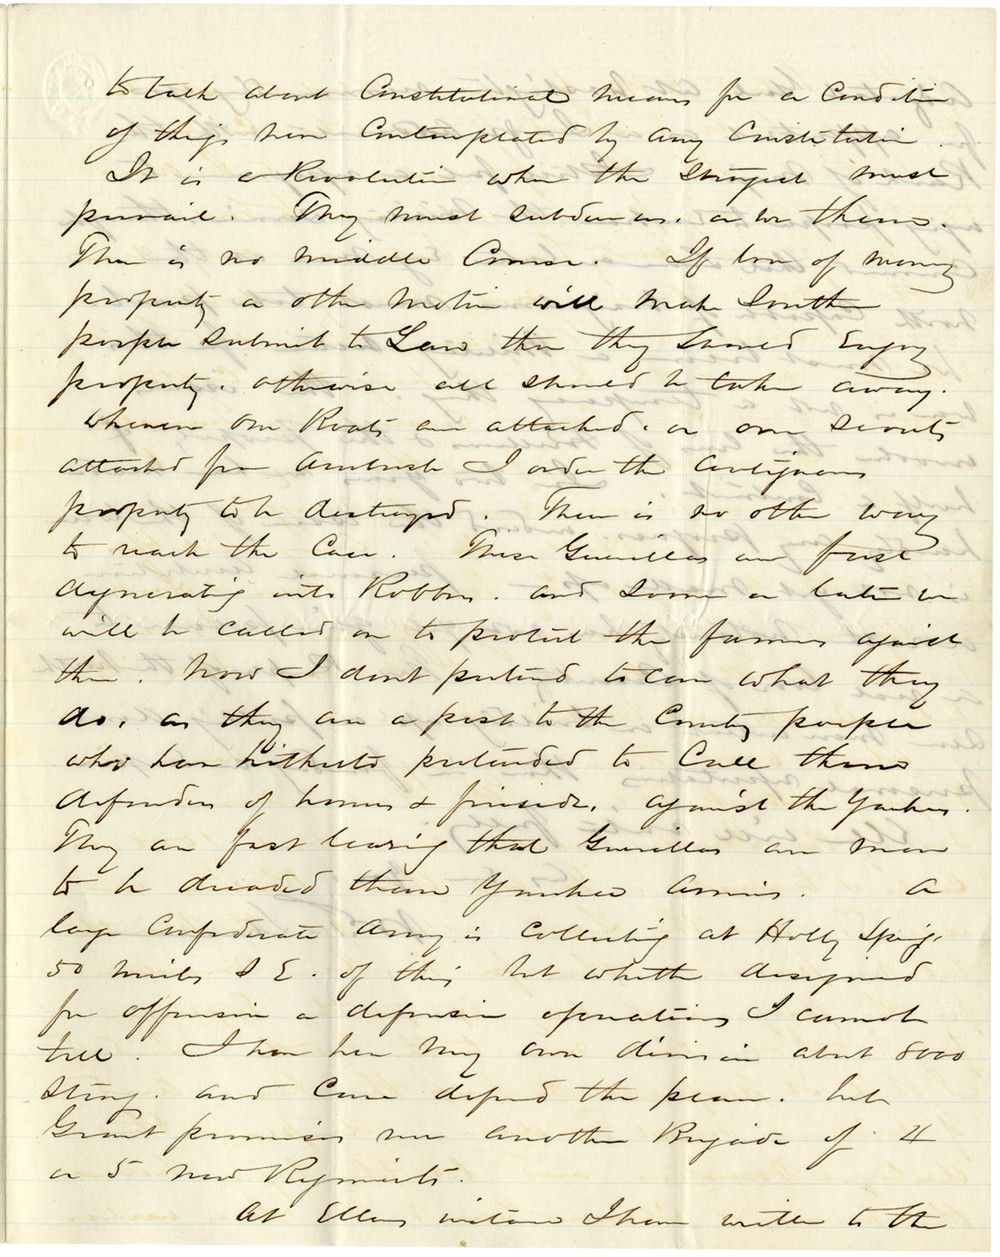 to talk about Constitutional means for a Condition
of things never Contemplated by any Constitution.
It is a Revolution when the Strongest must
prevail. They must subdue us. or we them.
There is no middle Course. If love of money
property or other motive will make South
people submit to Law then they should Enjoy
property. otherwise all should be taken away.
Whenever our Boats are attacked. or our Scouts
attacked from ambush I order the contiguous
property to be destroyed. There is no other way
to reach the Case. These Guerillas are fast
degenerating into Robbers. and sooner or later we
will be called on to protect the farmers against
them. Now I dont pretend to care what they
do, as they are a pest to the Country people
who have hitherto pretended to Call them
defenders of homes & firesides, against the Yankees.
They are fast learning that Guerillas are more
to be dreaded than Yankee Armies. A
large Confederate Army is Collecting at Holly Springs
50 miles S E. of this, but whether designed
for offensive or defensive operations I cannot
tell. I have here my own division about 8000
strong. and Can defend the place. but
Grant promises me another Brigade of 4
or 5 new Regiments.
At Ellens instance I have written to the